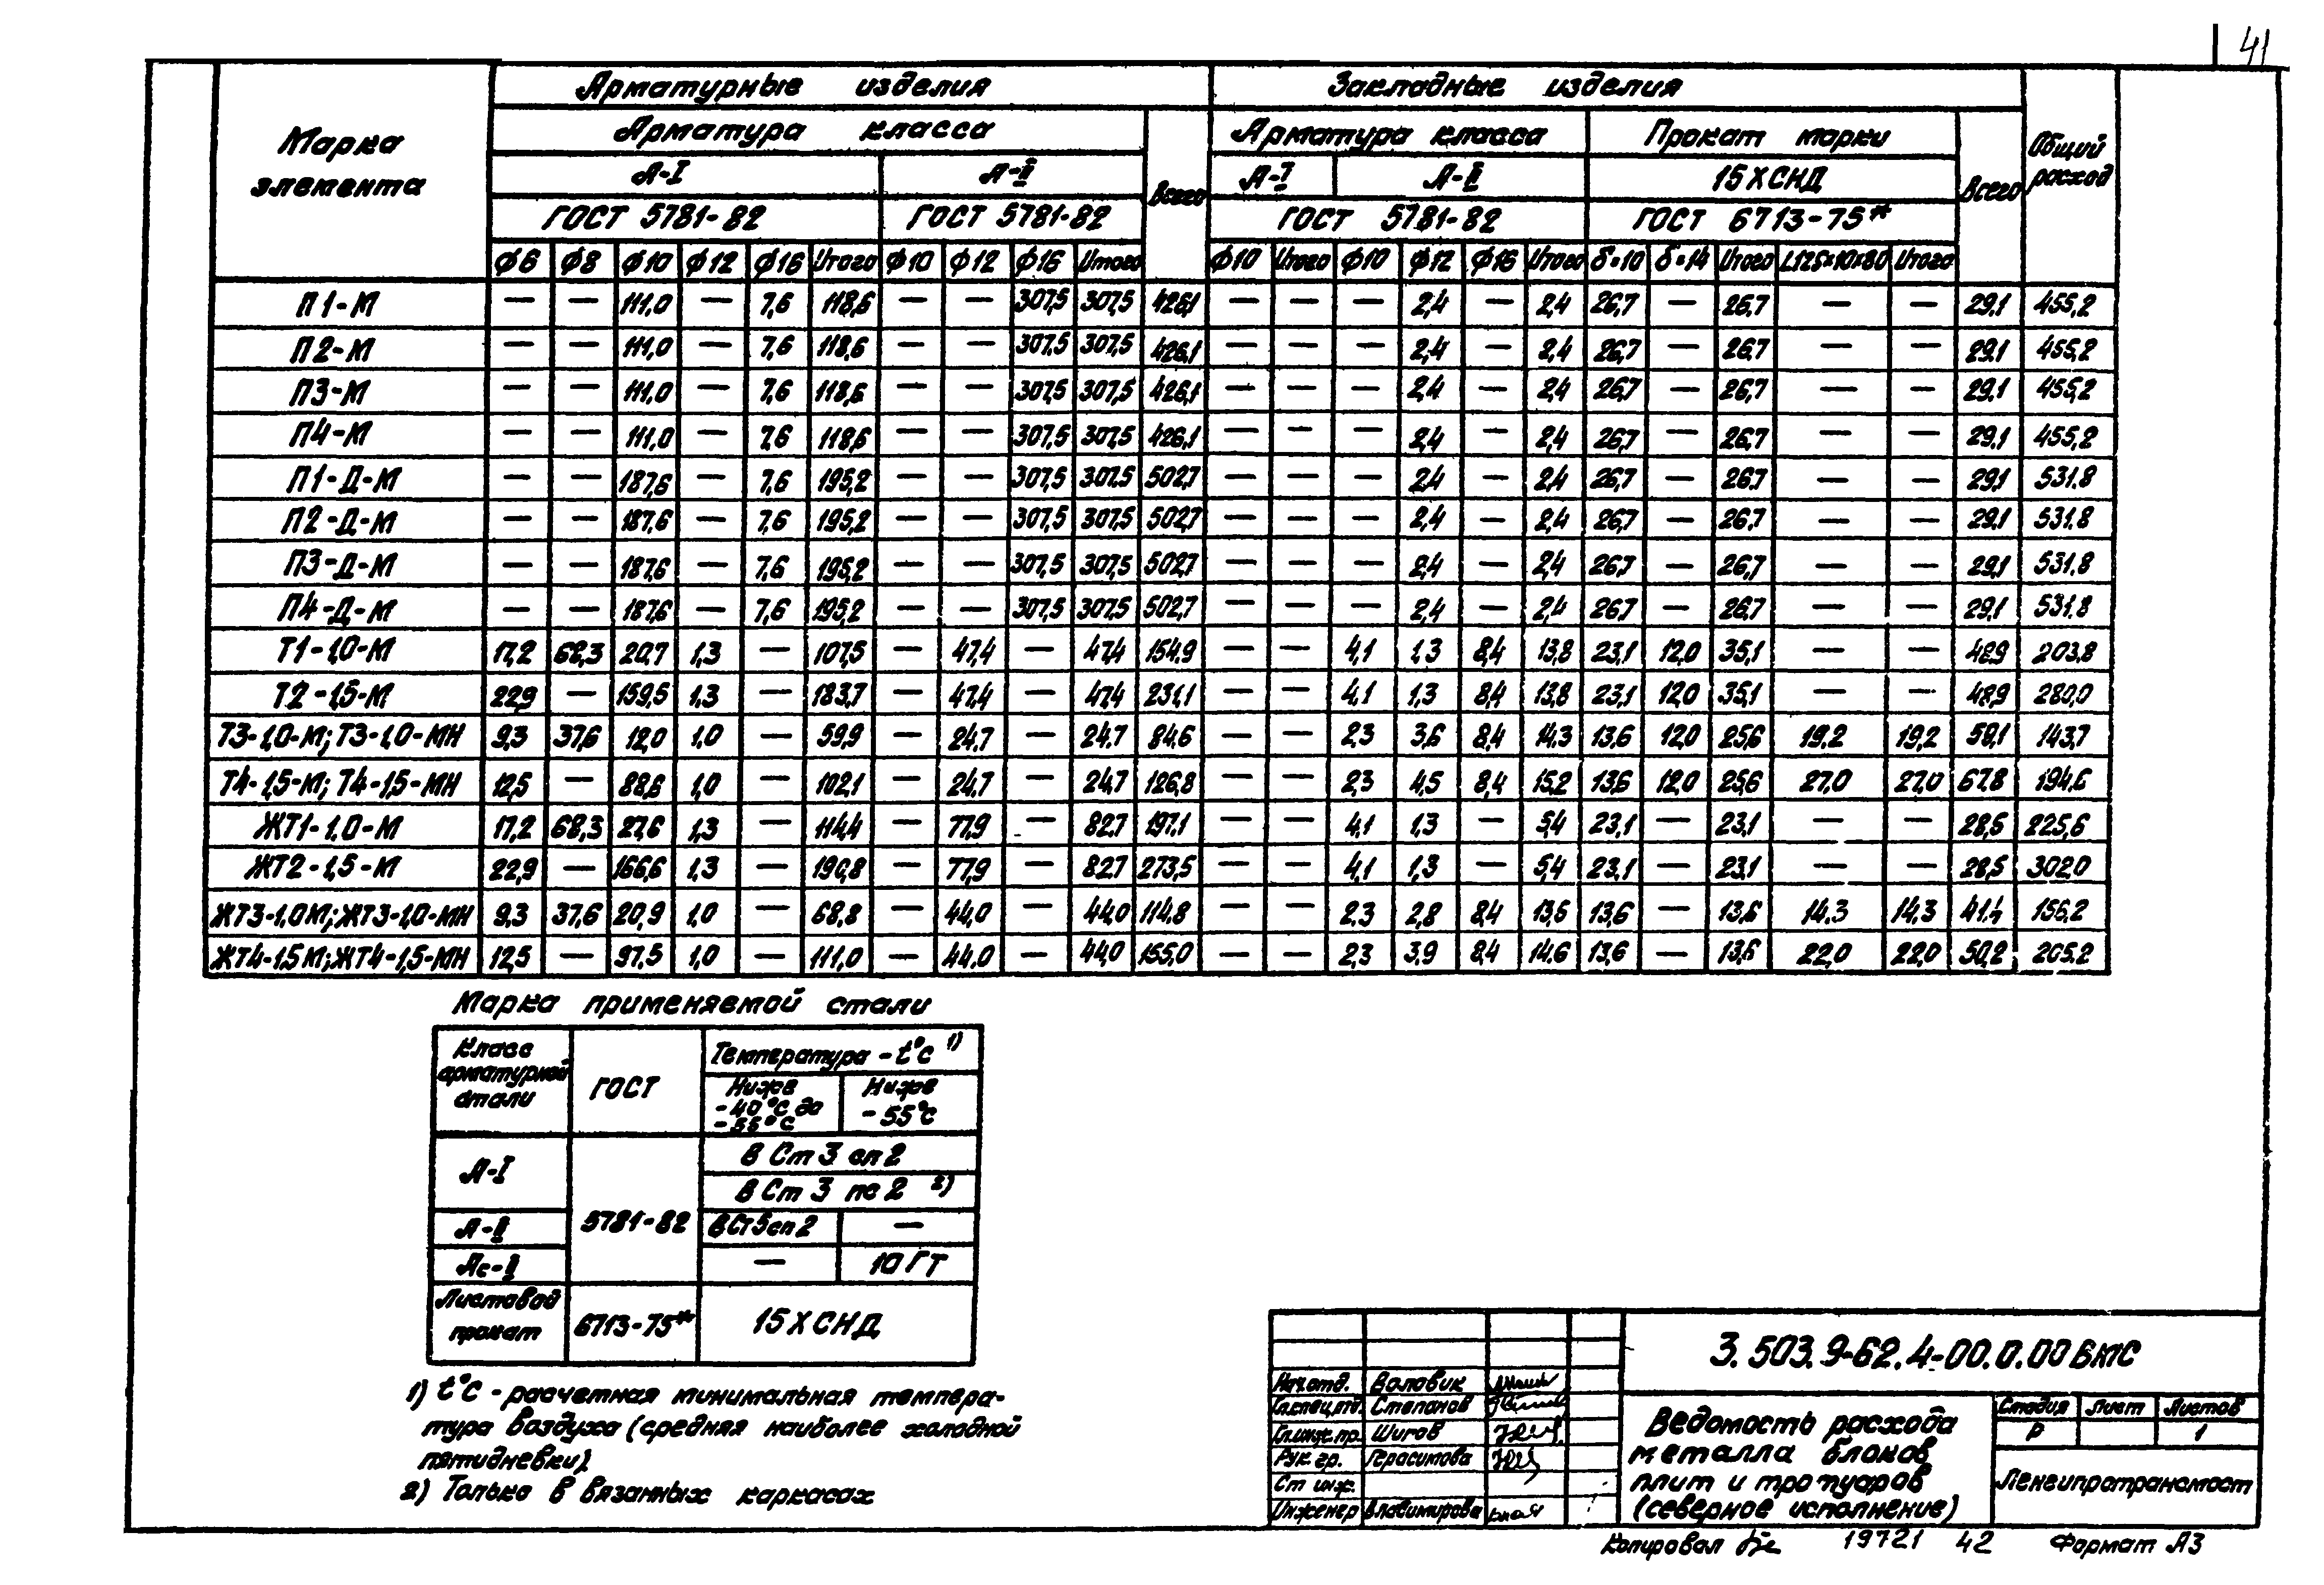 41
Марка элемента
Арматурные изделия
Закладные изделия
Общий расход
Арматура класса
Всего
Арматура класса
Прокат марки
Всего
А-I
А-II
А-I
А-II
15ХСНД
ГОСТ 5781-82
ГОСТ 5781-82
ГОСТ 5781-82
ГОСТ 6713-75*
ф6 ф8 ф10 ф12 ф16 Итого ф10 ф12 ф16 Итого ф10 Итого ф10 ф12 ф16 Итого δ=10 δ=14 Итого L125×10×80 Итого
П1-М — — 111,0 — 7,6 118,6 — — 307,5 307,5 426,1 — — — 2,4 — 2,4 26,7 — 26,7 — — 29,1 455,2
П2-М — — 111,0 — 7,6 118,6 — — 307,5 307,5 426,1 — — — 2,4 — 2,4 26,7 — 26,7 — — 29,1 455,2
П3-М — — 111,0 — 7,6 118,6 — — 307,5 307,5 426,1 — — — 2,4 — 2,4 26,7 — 26,7 — — 29,1 455,2
П4-М — — 111,0 — 7,6 118,6 — — 307,5 307,5 426,1 — — — 2,4 — 2,4 26,7 — 26,7 — — 29,1 455,2
П1-Д-М — — 187,6 — 7,6 195,2 — — 307,5 307,5 502,7 — — — 2,4 — 2,4 26,7 — 26,7 — — 29,1 531,8
П2-Д-М — — 187,6 — 7,6 195,2 — — 307,5 307,5 502,7 — — — 2,4 — 2,4 26,7 — 26,7 — — 29,1 531,8
П3-Д-М — — 187,6 — 7,6 195,2 — — 307,5 307,5 502,7 — — — 2,4 — 2,4 26,7 — 26,7 — — 29,1 531,8
П4-Д-М — — 187,6 — 7,6 195,2 — — 307,5 307,5 502,7 — — — 2,4 — 2,4 26,7 — 26,7 — — 29,1 531,8
Т1-1,0-М 17,2 68,3 20,7 1,3 — 107,5 — 47,4 — 47,4 154,9 — — 4,1 1,3 8,4 13,8 23,1 12,0 35,1 — — 48,9 203,8
Т2-1,5-М 22,9 — 159,5 1,3 — 183,7 — 47,4 — 47,4 231,1 — — 4,1 1,3 8,4 13,8 23,1 12,0 35,1 — — 48,9 280,0
Т3-1,0-М; Т3-1,0-МН 9,3 37,6 12,0 1,0 — 59,9 — 24,7 — 24,7 84,6 — — 2,3 3,6 8,4 14,3 13,6 12,0 25,6 19,2 19,2 59,1 143,7
Т4-1,5-М; Т4-1,5-МН 12,5 — 88,6 1,0 — 102,1 — 24,7 — 24,7 126,8 — — 2,3 4,5 8,4 15,2 13,6 12,0 25,6 27,0 27,0 67,8 194,6
ЖТ1-1,0-М 17,2 68,3 27,6 1,3 — 114,4 — 77,9 — 82,7 197,1 — — 4,1 1,3 — 5,4 23,1 — 23,1 — — 28,5 225,6
ЖТ2-1,5-М 22,9 — 166,6 1,3 — 190,8 — 77,9 — 82,7 273,5 — — 4,1 1,3 — 5,4 23,1 — 23,1 — — 28,5 302,0
ЖТ3-1,0М; ЖТ3-1,0-МН 9,3 37,6 20,9 1,0 — 68,8 — 44,0 — 44,0 114,8 — — 2,3 2,8 8,4 13,5 13,6 — 13,6 14,3 14,3 41,4 156,2
ЖТ4-1,5М; ЖТ4-1,5-МН 12,5 — 97,5 1,0 — 111,0 — 44,0 — 44,0 155,0 — — 2,3 3,9 8,4 14,6 13,6 — 13,6 22,0 22,0 50,2 205,2
Марка применяемой стали
Класс арматурной стали
ГОСТ
Температура - t°С 1)
Ниже -40°С до -55°С
Ниже -55°С
А-I
5781-82
В Ст 3 сп 2
В Ст 3 пс 2 2)
А-II
ВСт5сп2 —
Ас-II
— 10ГТ
Листовой прокат
6713-75*
15ХСНД
1) t°С - расчетная минимальная темпера-
тура воздуха (средняя наиболее холодной
пятидневки).
2) Только в вязанных каркасах
3.503.9-62.4-00.0.00ВМС
Нач.отд. Воловик
Гл.спец.отд. Степанов
Гл.инж.пр. Шигов
Рук.гр. Герасимова
Ст инж.
Инженер Владимирова
Ведомость расхода
металла блоков
плит и тротуаров
(северное исполнение)
Стадия Лист Листов
Р 1
Ленгипротрансмост
Копировал
19721 42 Формат А3